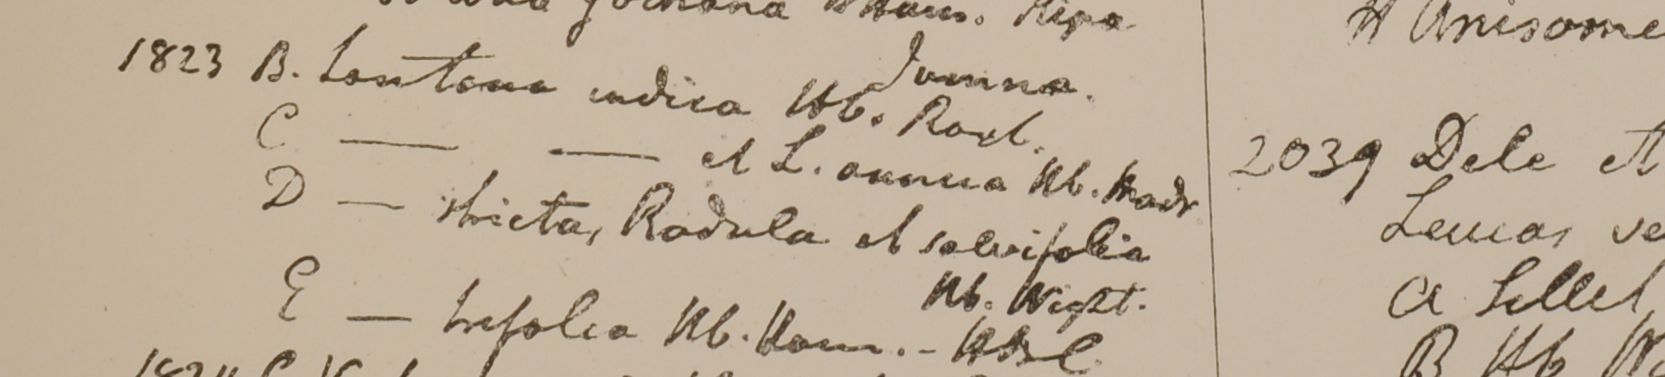 Ham. Ripa
Jumna.
1823 B. Lantana indica Hb. Roxb.
C — — et L. annua Hb. Madr
D — stricta, Radula et salvifolia
Hb. Wight.
E — trifolia Hb. Ham. - HBC
H Anisome
2039 Dele et
Leucas ve
a
B Hb W